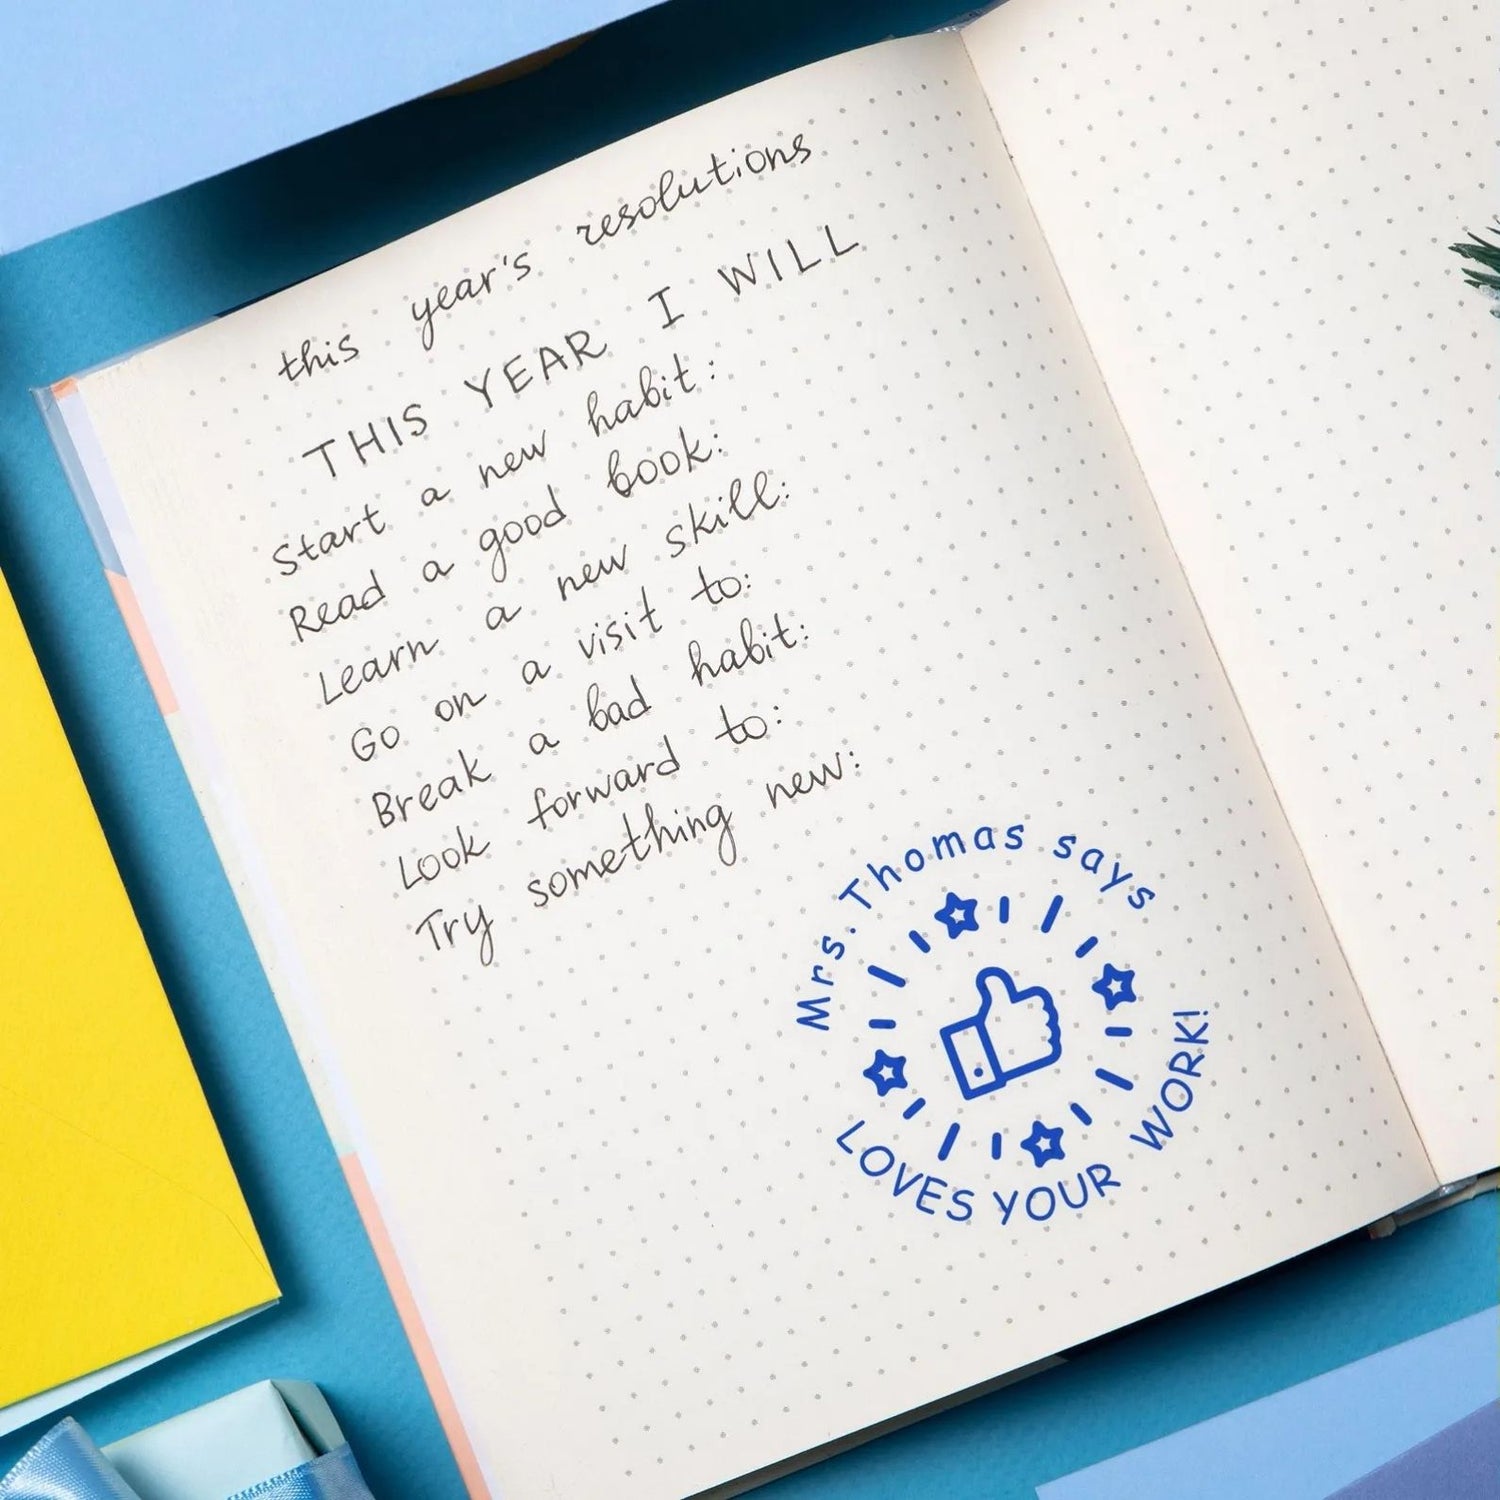 this year's resolutions
THIS YEAR I WILL
Start a new habit:
Read a good book:
Learn a new skill:
Go on a visit to:
Break a bad habit:
Look forward to:
Try something new:
Mrs. Thomas says
LOVES YOUR WORK!